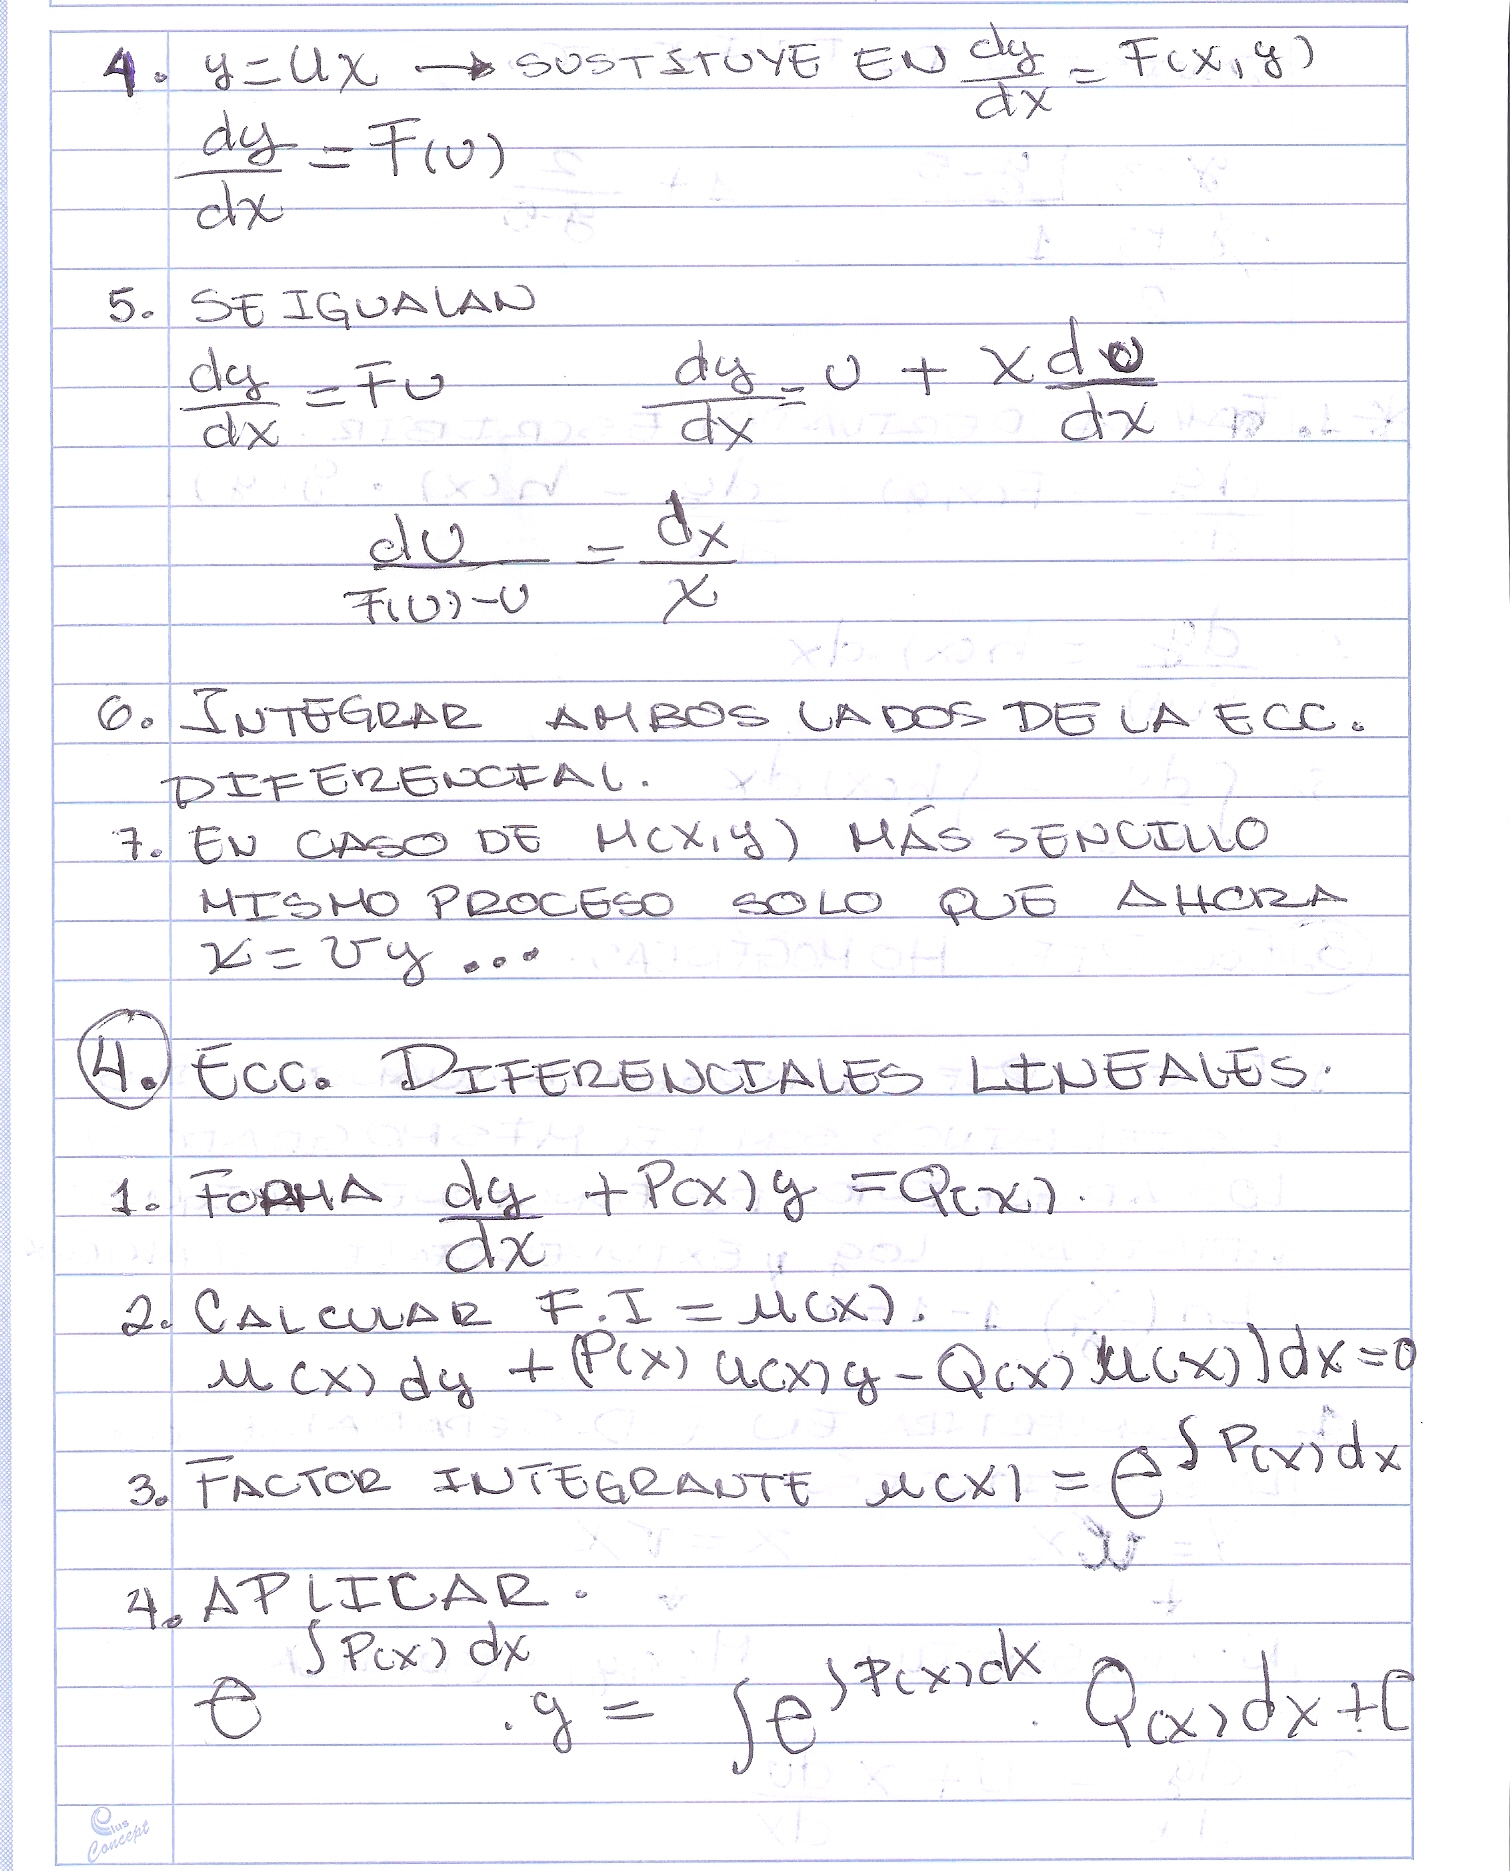 4. y=ux → SUSTITUYE EN dy/dx = F(x,y)
dy/dx = F(u)
5. SE IGUALAN
dy/dx = Fu dy/dx = u + x du/dx
du/F(u)-u = dx/x
6. INTEGRAR AMBOS LADOS DE LA ECC.
DIFERENCIAL.
7. EN CASO DE M(x,y) MÁS SENCILLO
MISMO PROCESO SOLO QUE AHORA
x=vy ...
4. ECC. DIFERENCIALES LINEALES.
1. FORMA dy/dx + P(x)y = Q(x).
2. CALCULAR F.I = μ(x).
μ(x)dy + (P(x) u(x)y - Q(x) μ(x))dx=0
3. FACTOR INTEGRANTE μ(x) = e^∫P(x)dx
4. APLICAR.
e^∫P(x)dx . y = ∫e^∫P(x)dx . Q(x)dx+C
Plus
Concept